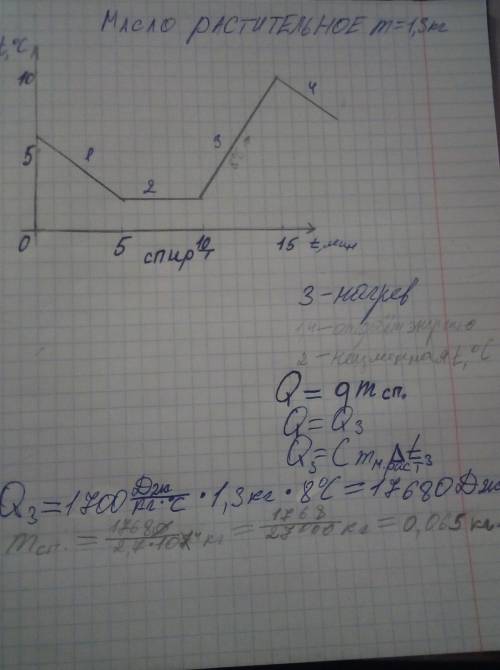 МАСЛО РАСТИТЕЛЬНОЕ m=1,3кг
t,°C
10
4
3
5
1
2
0 5 10 15 t,мин
спирт
3-нагрев
1,4-отдаёт энергию
2- t,°C
Q = qm сп.
Q = Q₃
Q₃ = Cm м.раст Δt₃
Q₃ = 1700 Дж/кг·°C · 1,3кг · 8°C = 17680 Дж
m сп. = 17680/2,7·10⁷ кг = 1768/27000 кг = 0,065 кг